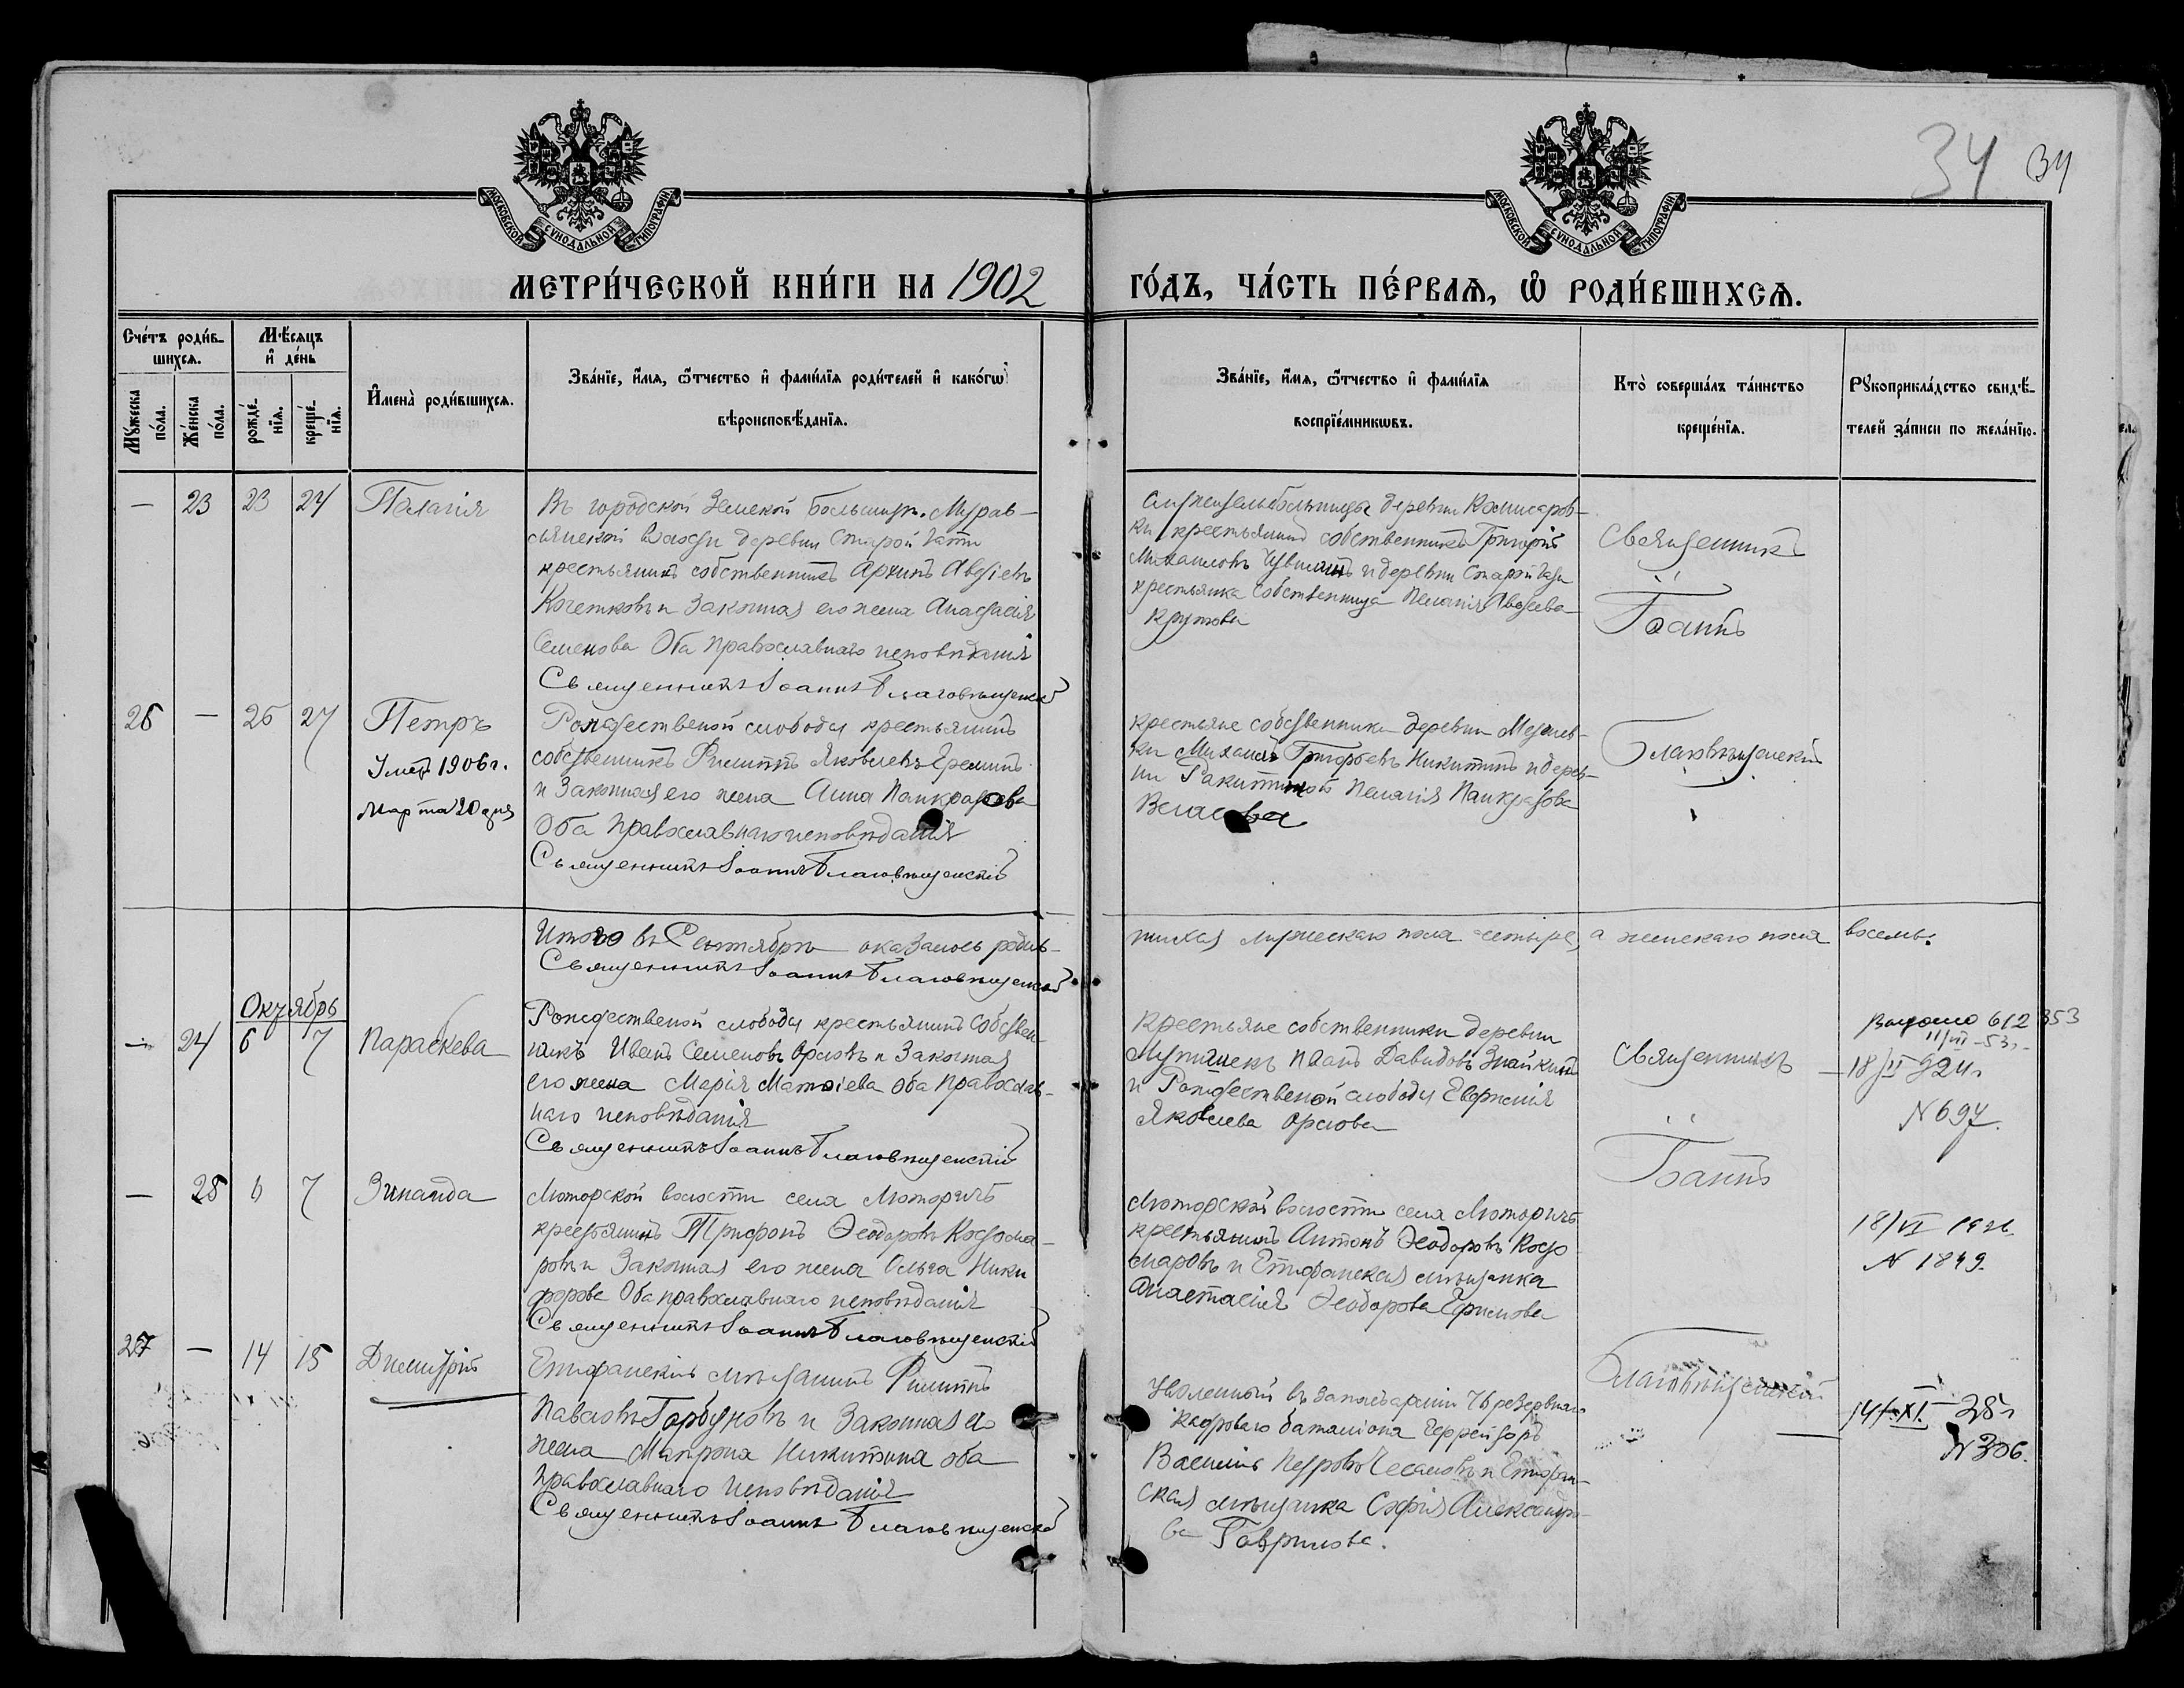 34 34
МОСКОВСКОЙ СѴНОДАЛЬНОЙ ТИПОГРАФІИ
МОСКОВСКОЙ СѴНОДАЛЬНОЙ ТИПОГРАФІИ
МЕТРИ́ЧЕСКОЙ КНИ́ГИ НА 1902 ГО́ДЪ, ЧА́СТЬ ПЕ́РВАѦ, Ѡ РОДИ́ВШИХСѦ.
Сче́тъ роди́в-
шихсѧ.
Мꙋ́жеска
по́ла.
Же́нска
по́ла.
Мѣ́сѧцъ
и҆ де́нь
рожде́-
нїѧ.
креще́-
нїѧ.
И҆мена̀ роди́вшихсѧ.
Зва́нїе, и҆́мѧ, ѻ҆́тчество и҆ фами́лїѧ роди́телей и҆ како́гѡ
вѣроисповѣ́данїѧ.
Зва́нїе, и҆́мѧ, ѻ҆́тчество и҆ фами́лїѧ
воспрїе́мникѡвъ.
Кто̀ соверша́лъ та́инство
креще́нїѧ.
Рꙋкоприкла́дство свидѣ́-
телей за́писи по жела́нїю.
— 23 23 24 Пелагія
Въ городской Земской больницѣ. Мурав-
сьянской волости деревни Старой Гати
крестьянинъ собственникъ Архипъ Авдіевъ
Кочетковъ и Законная его жена Анастасія
Семенова Оба православнаго исповѣданія
Священникъ Іоаннъ Благовѣщенскій
больницы деревни Комисаров-
ки крестьянинъ собственникъ Григорій
Михаиловъ и деревни Старой Гати
крестьянка собственница Пелагія Авдеева
Крутова
Священникъ
Іоаннъ
Благовѣщенскій
26 — 26 27 Петръ
Умеръ 1906 г.
Марта 20 дня
Рождественой слободы крестьянинъ
собственникъ Филиппъ Яковлевъ Ереминъ
и Законная его жена Анна Панкратова
Оба православнаго исповѣданія
Священникъ Іоаннъ Благовѣщенскій
крестьяне собственники деревни
ки Михаилъ Григорьевъ Никитинъ и дерев-
ни Ракитиной Пелагія Панкратова
Власова
Итого въ Сентябрѣ оказалось родив-
шихся мужескаго пола четыре, а женскаго пола восемь:
Священникъ Іоаннъ Благовѣщенскій
Октябрь
— 24 6 7 Параскева
Рождественой слободы крестьянинъ Собствен-
никъ Иванъ Семеновъ Орловъ и Законная
его жена Марія Матвіева Оба православ-
наго исповѣданія
Священникъ Іоаннъ Благовѣщенскій
Крестьяне собственники деревни
Иванъ Давидовъ Знайкинъ
и Рождественой слободы Евфимія
Яковлева Орлова
Священникъ
Іоаннъ
Благовѣщенскій
612 353
11/VII-53 г.
18/II 924 г.
N 697.
— 25 6 7 Зинаида
Люторской волости села Люторичъ
крестьянинъ Трифонъ Ѳеодоровъ Косома-
ровъ и Законная его жена Ольга Ники
форова Оба православнаго исповѣданія
Священникъ Іоаннъ Благовѣщенскій
Люторской волости села Люторичъ
крестьянинъ Антонъ Ѳеодоровъ Косо
маровъ и Епифанская мѣщанка
Анастасія Ѳеодорова Ефимова
18/VI
N 1849
27 — 14 15 Димитрій
Епифанскій мѣщанинъ Филиппъ
Павловъ Горбуновъ и Законная его
жена Матрона Никитина оба
православнаго исповѣданія
Священникъ Іоаннъ Благовѣщенскій
Уволенный въ запасъ арміи 76 резервнаго
Кадроваго баталіона Ефрейторъ
Василій Петровъ и Епифан-
ская мѣщанка Софія Александро-
ва Гаврилова.
14/XI 28 г.
N 306.